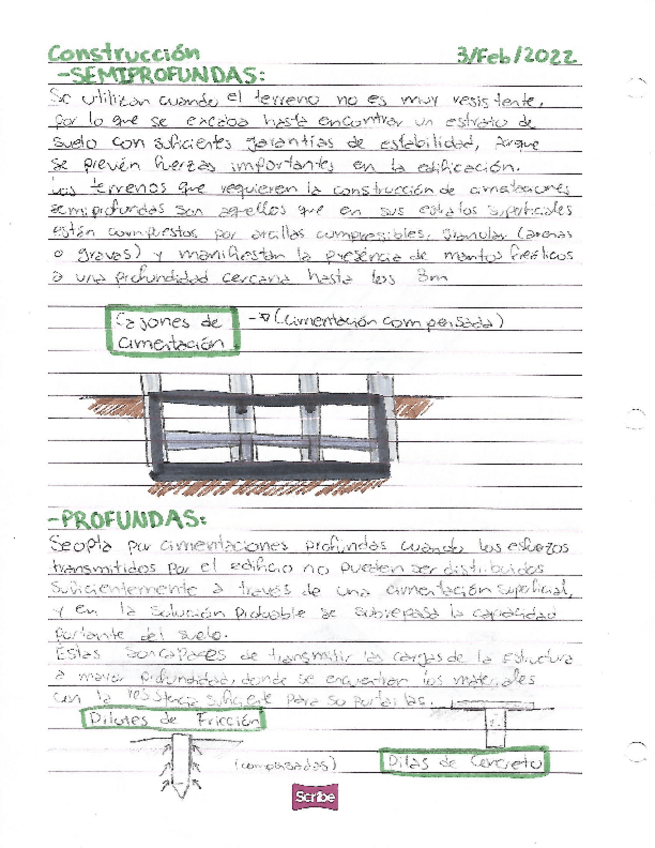 Construcción 3/Feb/2022
-SEMIPROFUNDAS:
Se utilizan cuando el terreno no es muy resistente,
por lo que se excaba hasta encontrar un estrato de
suelo con suficientes garantías de estabilidad, Porque
se prevén fuerzas importantes en la edificación.
Los terrenos que requieren la construcción de cimentaciones
semiprofundas son aquellos que en sus estratos superficiales
están compuestos por arcillas compresibles, granular (arenas
o gravas) y manifiestan la presencia de mantos freáticos
a una profundidad cercana hasta los 3m
Cajones de -▷(cimentación compensada)
cimentación
-PROFUNDAS:
Se opta por cimentaciones profundas cuando los esfuerzos
transmitidos por el edificio no pueden ser distribuidos
suficientemente a través de una cimentación superficial,
y en la solución probable se sobrepasa la capacidad
portante del suelo.
Estas son capaces de transmitir las cargas de la estructura
a mayor profundidad, donde se encuentran los materiales
con la resistencia suficiente para soportarlas.
Pilotes de Fricción
(compensadas) Pilas de Concreto
Scribe